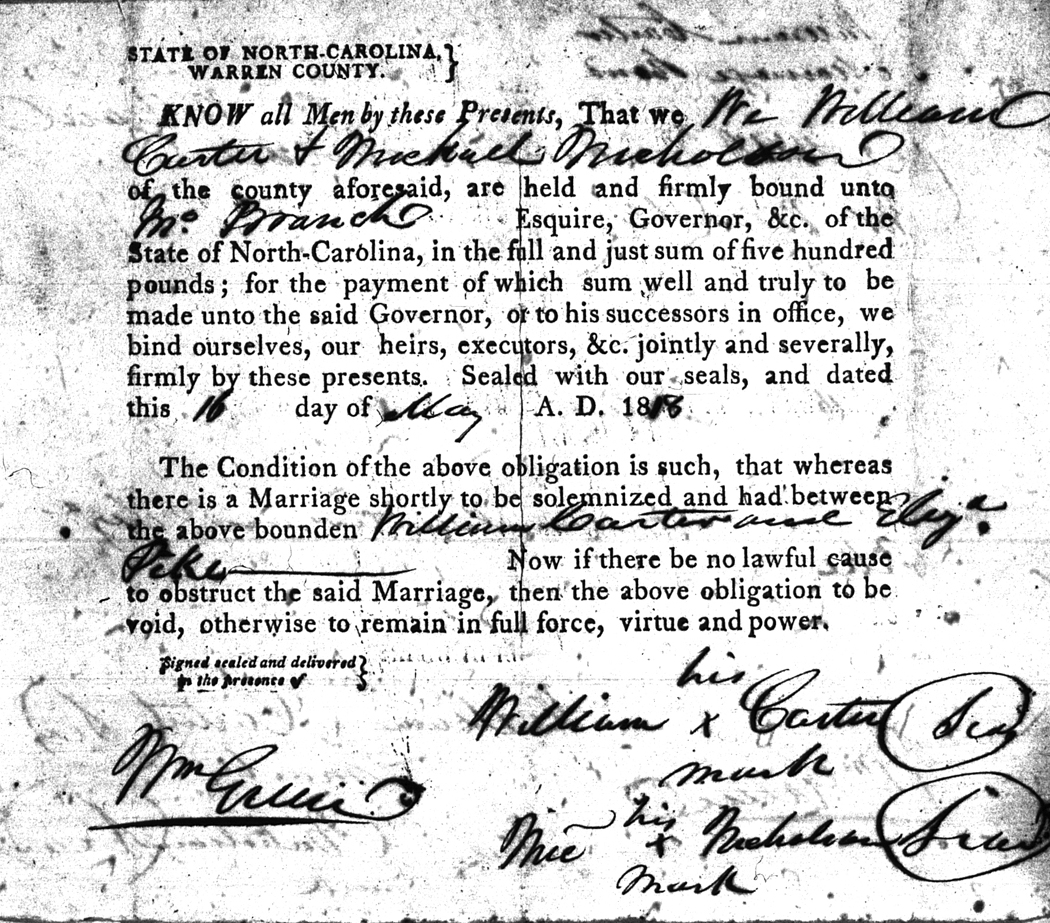 STATE OF NORTH-CAROLINA,
WARREN COUNTY.
KNOW all Men by these Presents, That we We William
Carter & Michael Nicholson
of the county aforesaid, are held and firmly bound unto
Branch Esquire, Governor, &c. of the
State of North-Carolina, in the full and just sum of five hundred
pounds; for the payment of which sum well and truly to be
made unto the said Governor, or to his successors in office, we
bind ourselves, our heirs, executors, &c. jointly and severally,
firmly by these presents. Sealed with our seals, and dated
this 16 day of May A. D. 1818
The Condition of the above obligation is such, that whereas
there is a Marriage shortly to be solemnized and had between
the above bounden William Carter and
Now if there be no lawful cause
to obstruct the said Marriage, then the above obligation to be
void, otherwise to remain in full force, virtue and power.
Signed sealed and delivered
in the presence of
his
William x Carter Seal
mark
Wm
his
Mic x Nicholson Seal
mark